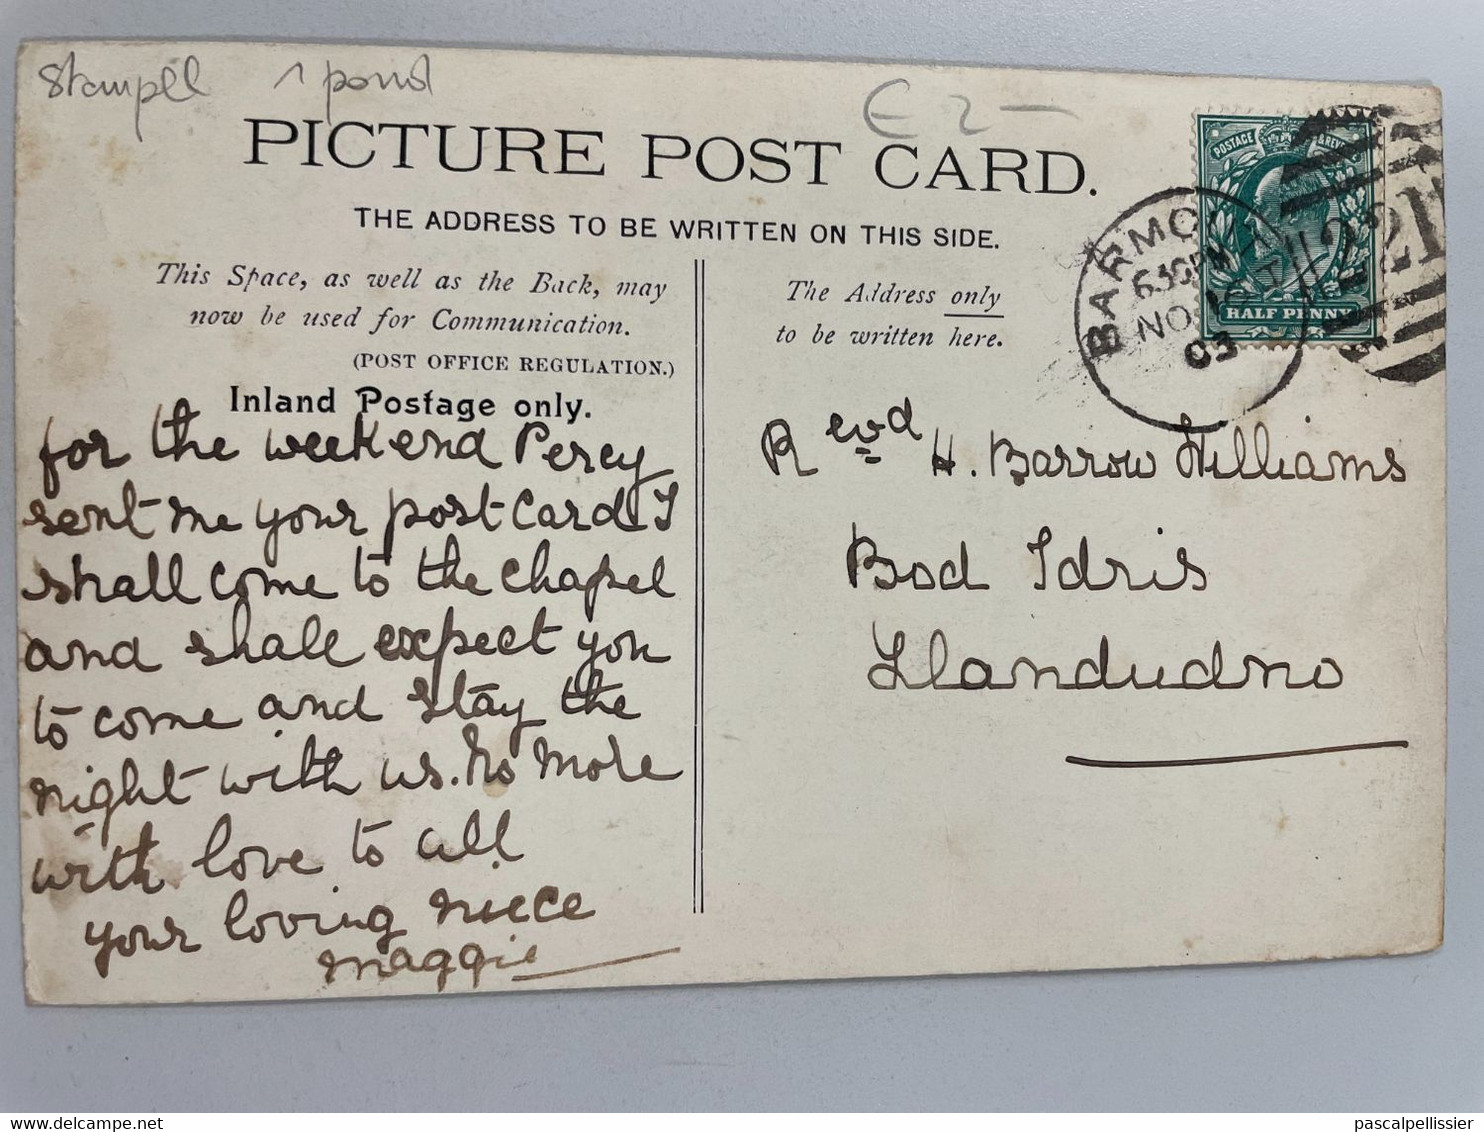 1 pond
€ 2 —
PICTURE POST CARD.
THE ADDRESS TO BE WRITTEN ON THIS SIDE.
This Space, as well as the Back, may
now be used for Communication.
(POST OFFICE REGULATION.)
Inland Postage only.
for the weekend Percy
sent me your postcard I
shall come to the chapel
and shall expect you
to come and stay the
night with us. No more
with love to all
your loving niece
Maggie
The Address only
to be written here.
POSTAGE & REVE
HALF PENNY
BARMO
630PM
NO
03
221
Revd H. Barrow Williams
Bod Idris
Llandudno
delcampe.net
pascalpellissier